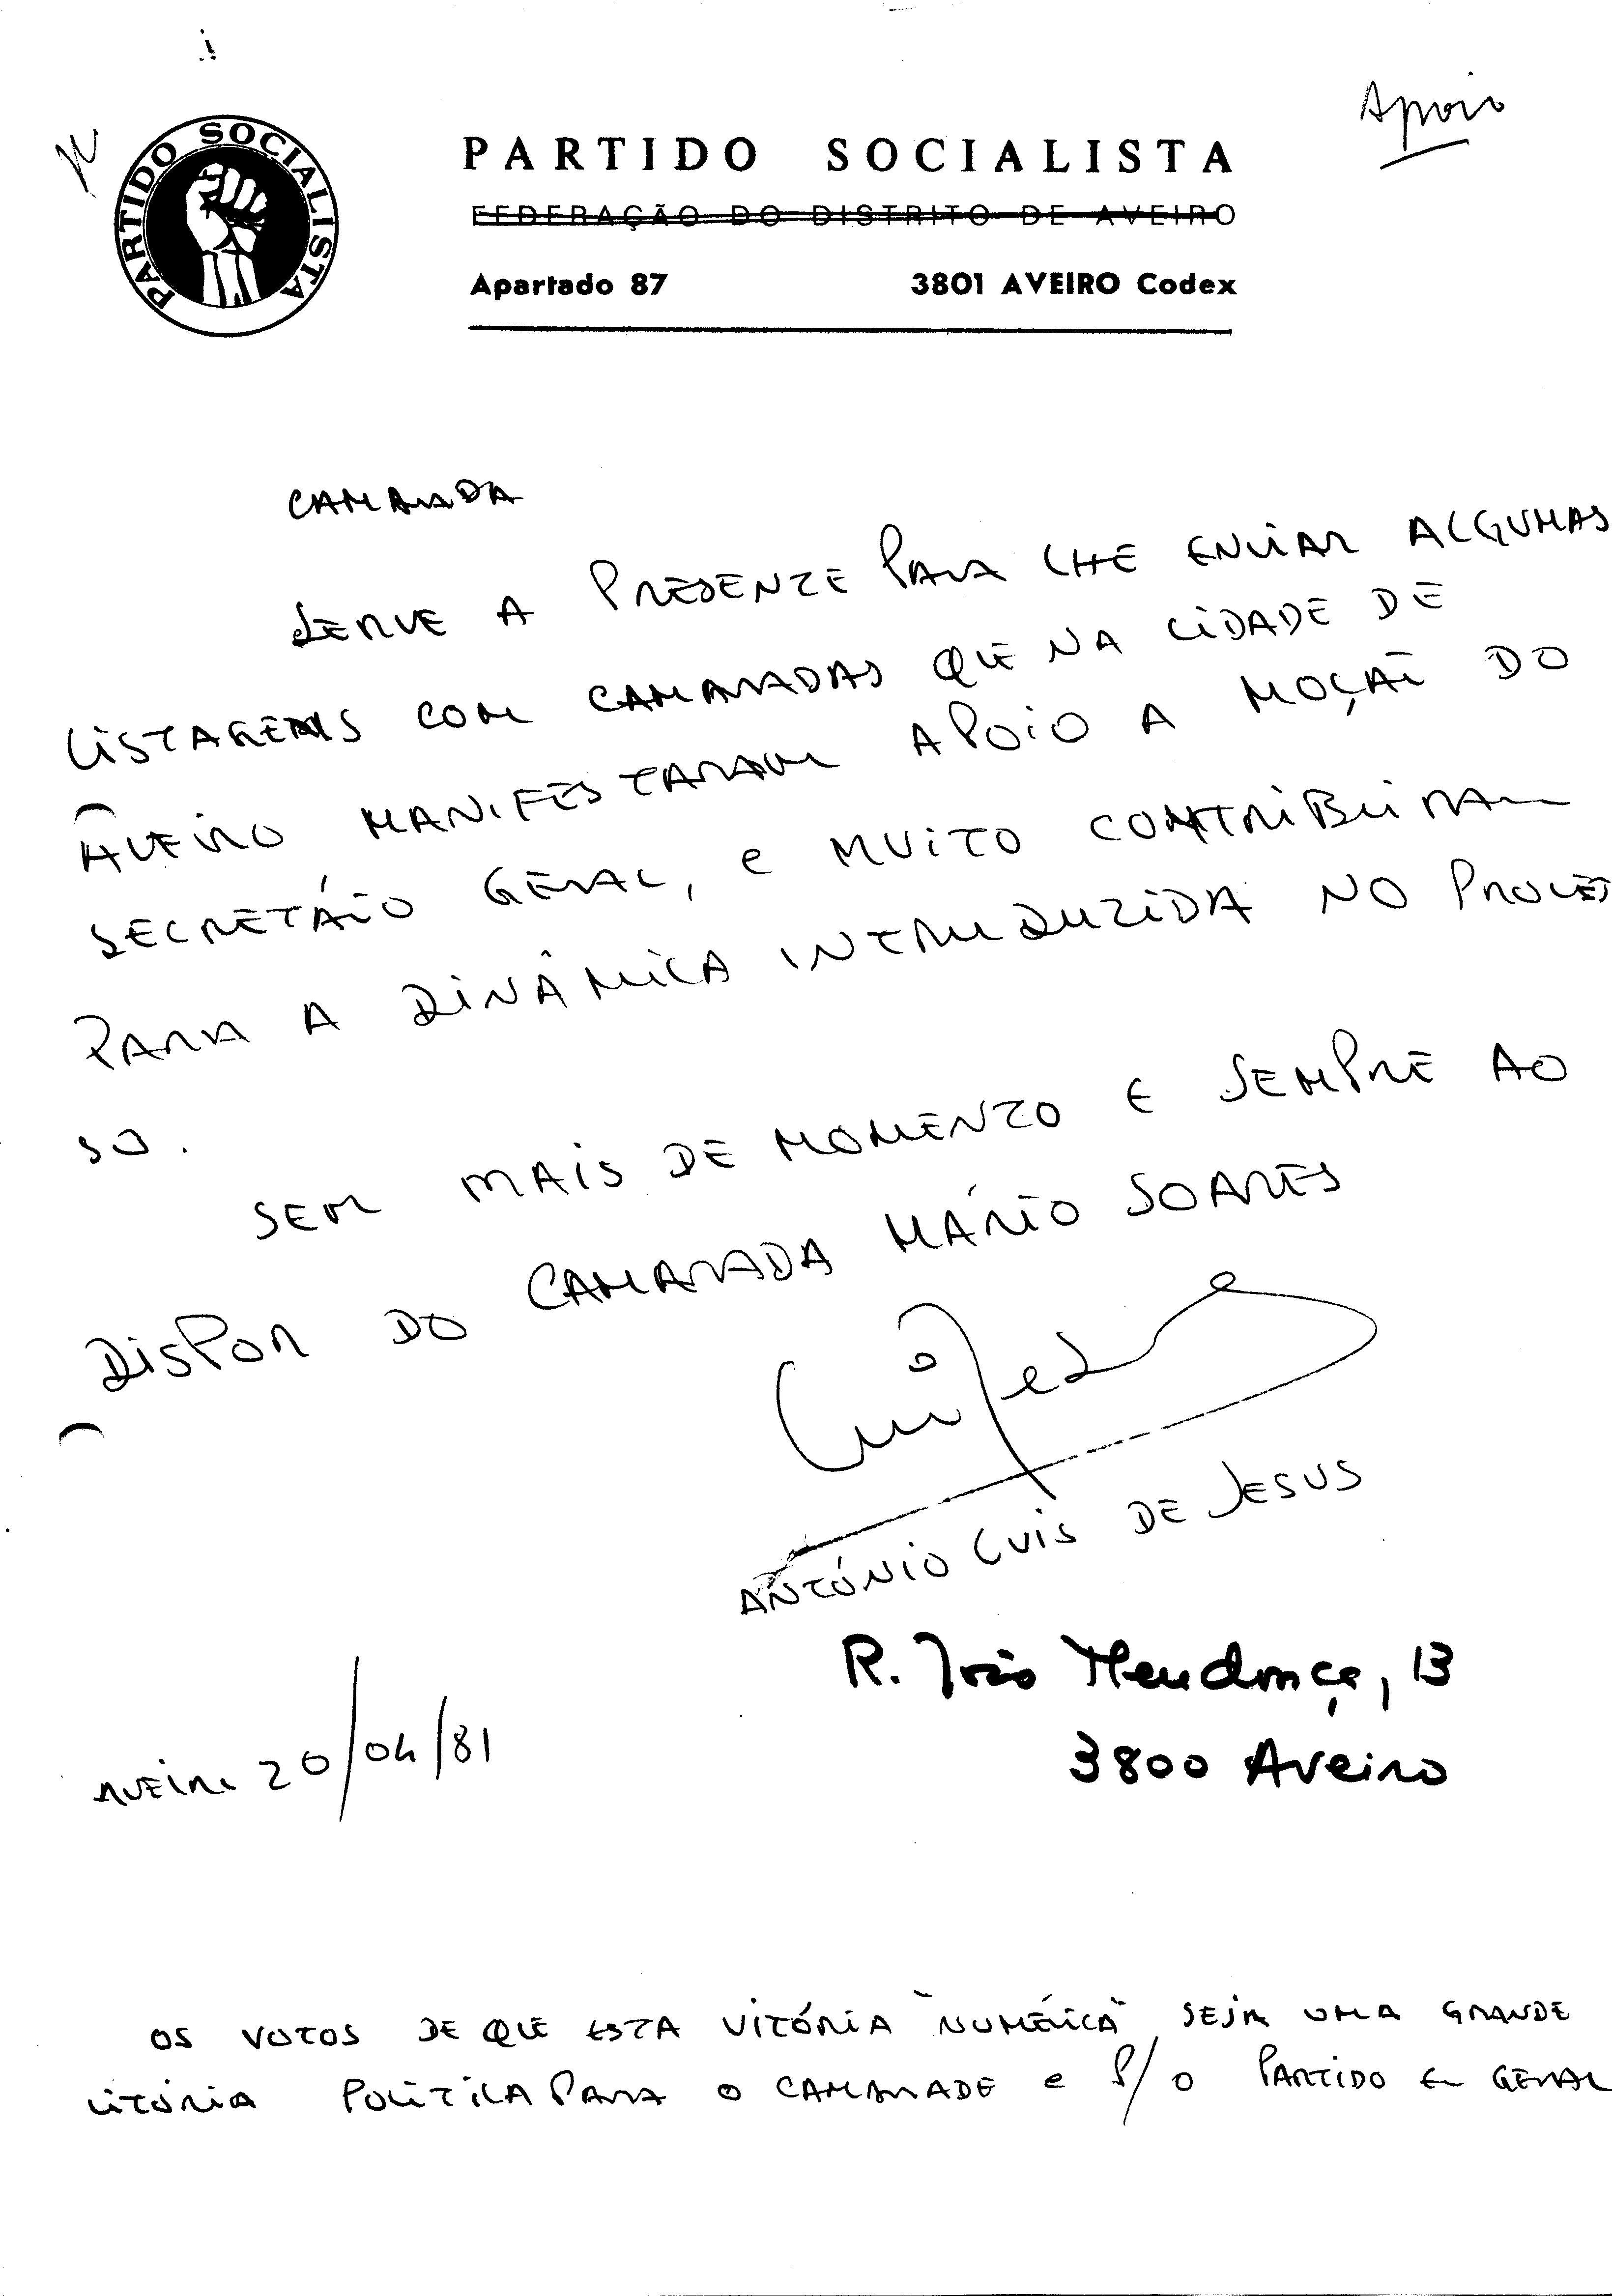 Apoio
PARTIDO SOCIALISTA
PARTIDO SOCIALISTA
FEDERAÇÃO DO DISTRITO DE AVEIRO
Apartado 87 3801 AVEIRO Codex
CAMARADA
SERVE A PRESENTE PARA LHE ENVIAR ALGUMAS
LISTAGENS COM CAMARADAS QUE NA CIDADE DE
AVEIRO MANIFESTARAM APOIO A MOÇÃO DO
SECRETÁIO GERAL, e MUITO CONTRIBUIRAM
PARA A DINÂMICA INTRODUZIDA NO PROCES
SO.
SEM MAIS DE MOMENTO E SEMPRE AO
DISPOR DO CAMARADA MÁRIO SOARES
ANTÓNIO LUIS DE JESUS
R. João Mendonça, 13
3800 Aveiro
AVEIRO 20/04/81
OS VOTOS DE QUE ESTA VITÓRIA "NUMÉRICA" SEJA UMA GRANDE
VITÓRIA POLÍTICA PARA O CAMARADE e P/O PARTIDO EM GERAL